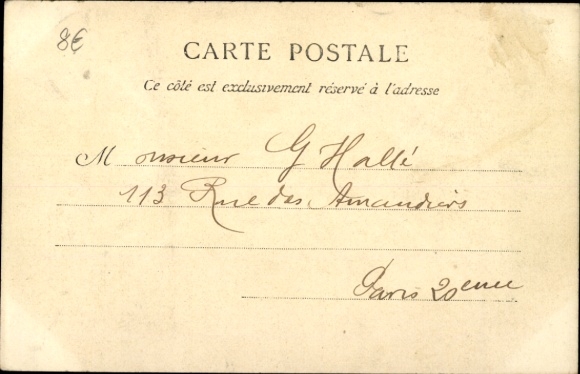 8€
CARTE POSTALE
Ce côté est exclusivement réservé à l'adresse
Monsieur G Hallé
113 Rue des Amandiers
Paris 20eme